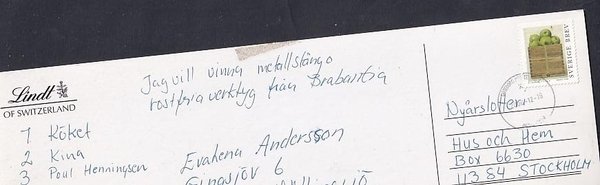 Lindt
OF SWITZERLAND
Jag vill vinna metallstång o
rostfria verktyg från Brabantia
1 Köket
2 Kina
3 Poul Henningsen
Evahena Andersson
6
SVERIGE BREV
Nyårslotten
Hus och Hem
Box 6630
113 84 STOCKHOLM